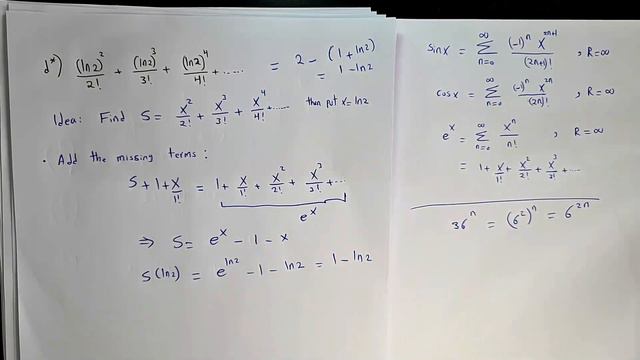 d*) (ln2)²/2! + (ln2)³/3! + (ln2)⁴/4! + ...... = 2 - (1 + ln2)
= 1 - ln2
Idea: Find S = x²/2! + x³/3! + x⁴/4! + ...... then put x = ln2
• Add the missing terms:
S + 1 + x/1! = 1 + x/1! + x²/2! + x³/3! + ...
eˣ
⇒ S = eˣ - 1 - x
S(ln2) = e^ln2 - 1 - ln2 = 1 - ln2
sinx = ∑_{n=0}^{∞} (-1)ⁿ x^{2n+1}/(2n+1)! , R = ∞
cosx = ∑_{n=0}^{∞} (-1)ⁿ x^{2n}/(2n)! , R = ∞
eˣ = ∑_{n=0}^{∞} xⁿ/n! , R = ∞
= 1 + x/1! + x²/2! + x³/3! + ....
36ⁿ = (6²)ⁿ = 6^{2n}